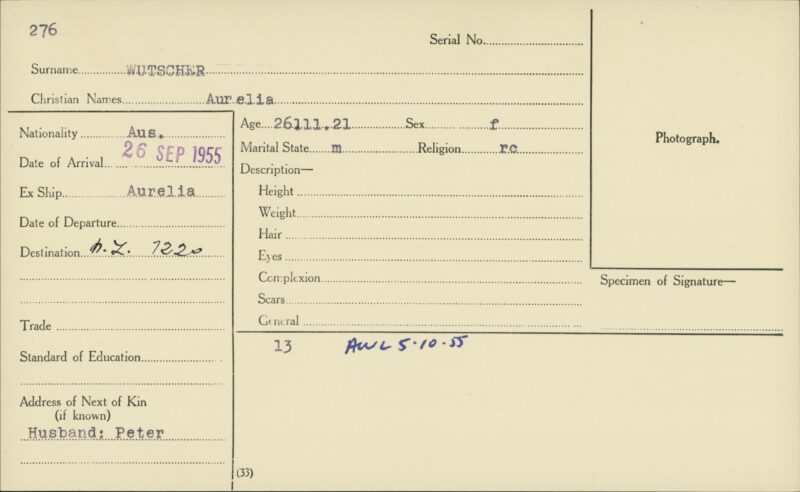 276
Serial No.
Surname WUTSCHER
Christian Names Aurelia
Nationality Aus.
Date of Arrival 26 SEP 1955
Ex Ship Aurelia
Date of Departure
Destination N.Z. 1220
Trade
Standard of Education
Address of Next of Kin
(if known)
Husband: Peter
Age 26111.21 Sex f
Marital State m Religion rc
Description—
Height
Weight
Hair
Eyes
Complexion
Scars
General
13 AWL 5.10.55
(33)
Photograph.
Specimen of Signature—